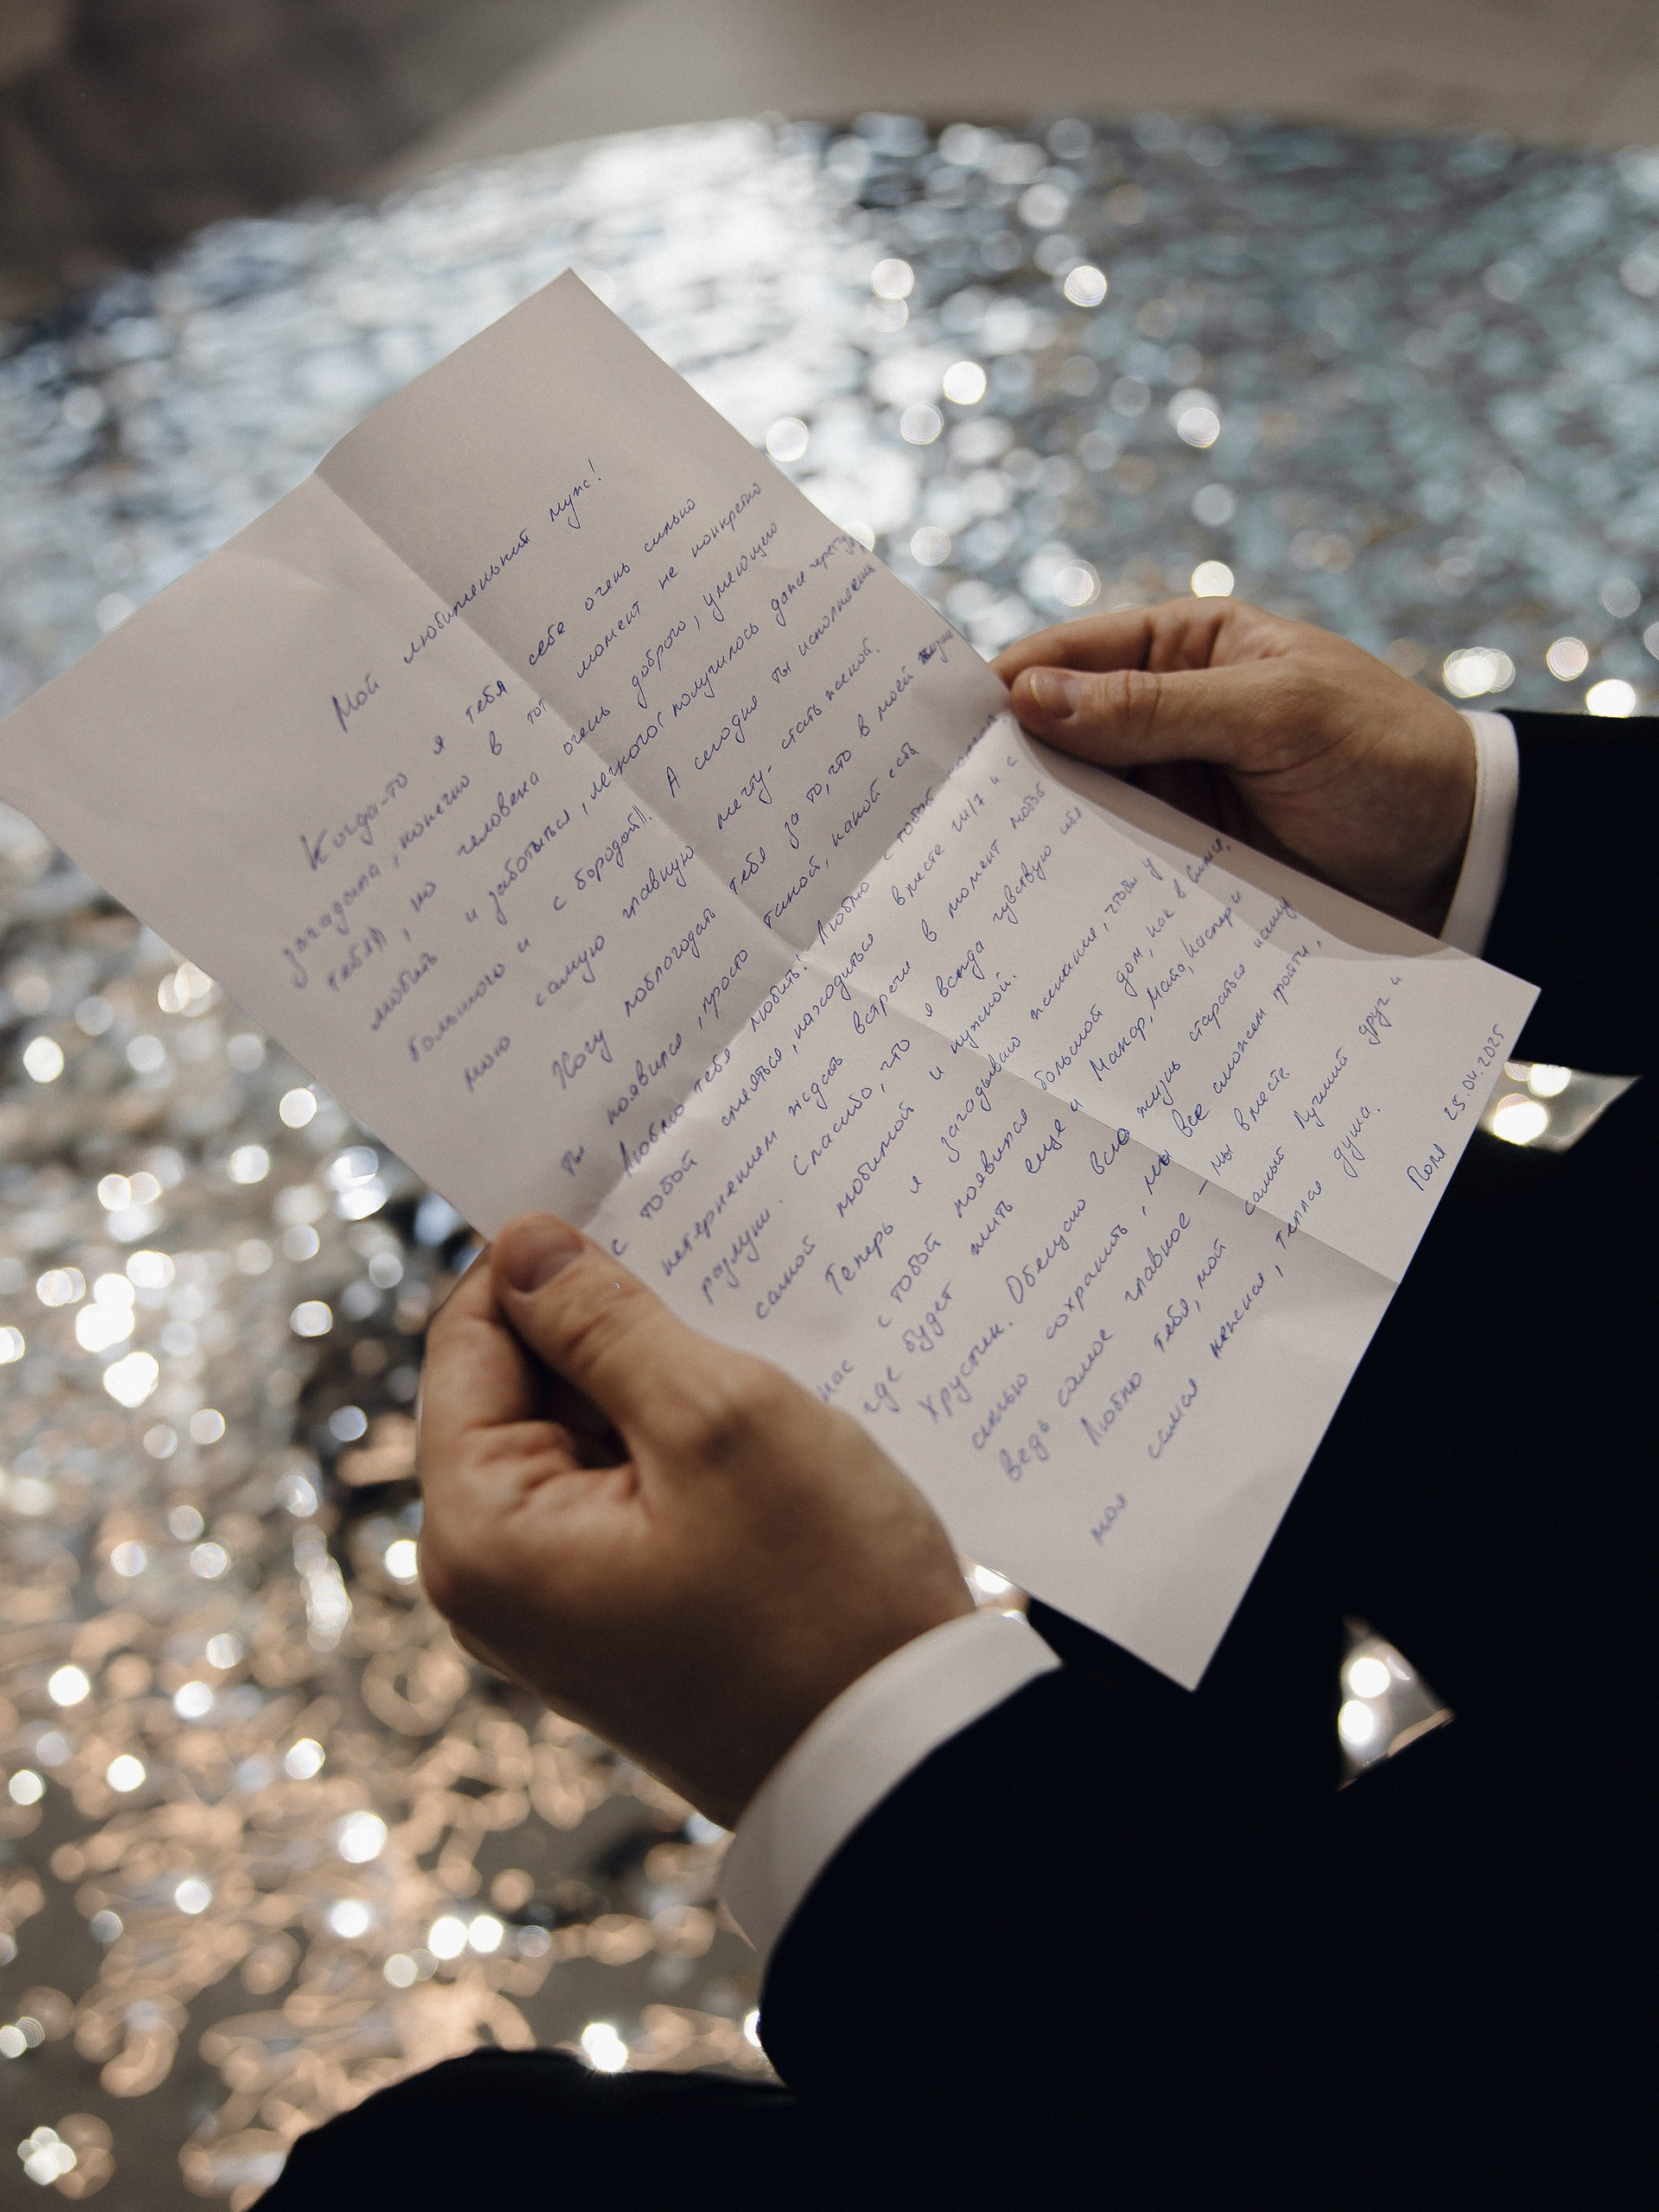 Мой любименький муж!
Когда-то я тебя себе очень сильно
загадала, конечно в тот момент не конкретно
тебя)), но человека очень доброго, умеющего
любить и заботиться, легкого( получилось даже
большого и с бородой)). А сегодня ты исполняешь
мою самую главную мечту- стать женой.
Хочу поблагодать тебя за то, что в моей жизни
ты появился, просто такой, какой есть
Люблю тебя любить! Люблю с тобой
с тобой смеяться, находиться вместе 24/7 и с
нетерпением ждать встречи в момент любой
разлуки. Спасибо, что я всегда чувствую себя
самой любимой и нужной.
Теперь я загадываю желание, чтобы у
нас с тобой появился большой дом, как в Симсе,
где будет жить еще и Макар, Мата, Каспер и
Хрустик. Обещаю всю жизнь стараться нашу
семью сохранить, мы все сможем пройти,
ведь самое главное – мы вместе
Люблю тебя, мой самый лучший друг и
моя самая нежная, теплая душа.
Поля 25.04.2025